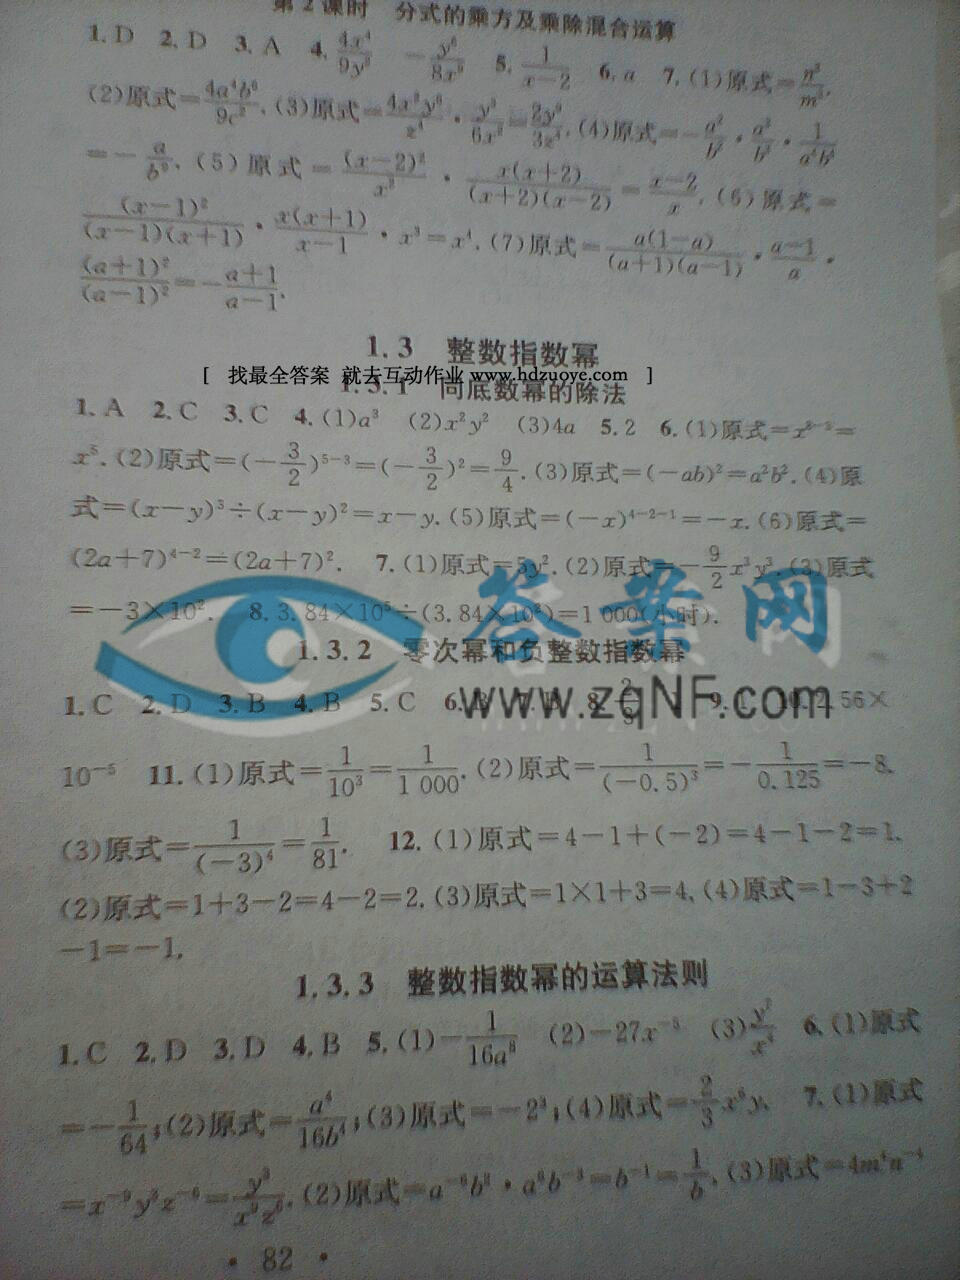 第2课时 分式的乘方及乘除混合运算
1. D 2. D 3. A 4. 4x⁴/9y² -y⁶/8x⁹ 5. 1/(x-2) 6. a 7. (1)原式=
(2)原式=4a⁴b⁶/9c². (3)原式= (4)原式=
=- (5)原式=(x-2)²/x² · x(x+2)/(x+2)(x-2) = (x-2)/x. (6)原式=
(x-1)²/(x-1)(x+1) · x(x+1)/(x-1) · x³=x⁴. (7)原式=a(1-a)/(a+1)(a-1) · (a-1)/a ·
(a+1)²/(a-1)²=-(a+1)/(a-1).
1.3 整数指数幂
[ 找最全答案 就去互动作业 www.hdzuoye.com ]
1.3.1 同底数幂的除法
1. A 2. C 3. C 4. (1)a³ (2)x²y² (3)4a 5. 2 6. (1)原式=
x⁵. (2)原式=(-3/2)⁵⁻³=(-3/2)²=9/4. (3)原式=(-ab)²=a²b². (4)原
式=(x-y)³÷(x-y)²=x-y. (5)原式=(-x)⁴⁻²⁻¹=-x. (6)原式=
(2a+7)⁴⁻²=(2a+7)². 7. (1)原式=3y². (2)原式=-9/2x³y³. (3)原式
=-3×10². 8. 3.84×10⁵÷(3.84×10²)=1 000(小时).
答案网
1.3.2 零次幂和负整数指数幂
www.zqNF.com
1. C 2. D 3. B 4. B 5. C 6. B 7. B 8. 9. 1 10. 2.56×
10⁻⁵ 11. (1)原式=1/10³=1/1 000. (2)原式=1/(-0.5)³=-1/0.125=-8.
(3)原式=1/(-3)⁴=1/81. 12. (1)原式=4-1+(-2)=4-1-2=1.
(2)原式=1+3-2=4-2=2. (3)原式=1×1+3=4. (4)原式=1-3+2
-1=-1.
1.3.3 整数指数幂的运算法则
1. C 2. D 3. D 4. B 5. (1)-1/16a⁸ (2)-27x⁻³ (3) 6. (1)原式
=-1/64; (2)原式=a⁴/16b⁴; (3)原式=-2³; (4)原式=2/3x⁶y. 7. (1)原式
=x⁻⁹y³z⁻⁶=y³/x⁹z⁶. (2)原式= =b⁻¹=1/b. (3)原式=4m⁴n⁻⁴
· 82 ·